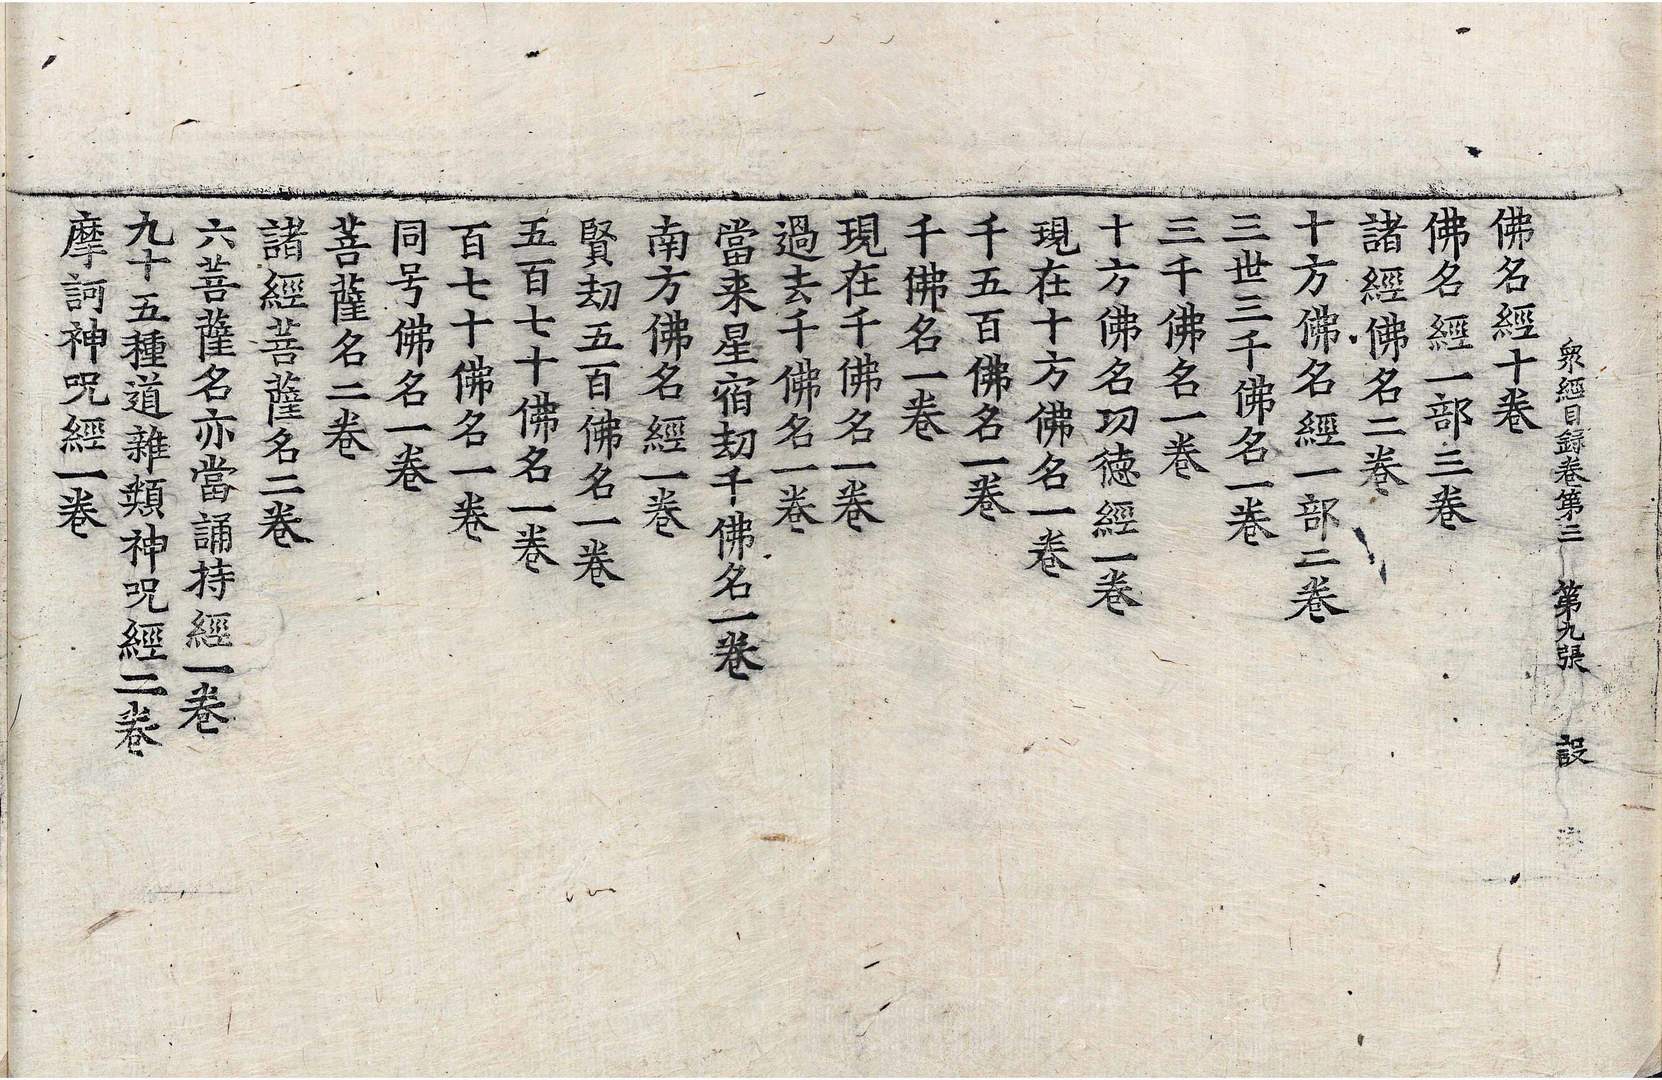 衆經目録卷第三 第九張 設
佛名經十卷
佛名經一部三卷
諸經佛名二卷
十方佛名經一部二卷
三世三千佛名一卷
三千佛名一卷
十方佛名功徳經一卷
現在十方佛名一卷
千五百佛名一卷
千佛名一卷
現在千佛名一卷
過去千佛名一卷
當来星宿劫千佛名一卷
南方佛名經一卷
賢劫五百佛名一卷
五百七十佛名一卷
百七十佛名一卷
同号佛名一卷
菩薩名二卷
諸經菩薩名二卷
六菩薩名亦當誦持經一卷
九十五種道雜類神呪經二卷
摩訶神呪經一卷